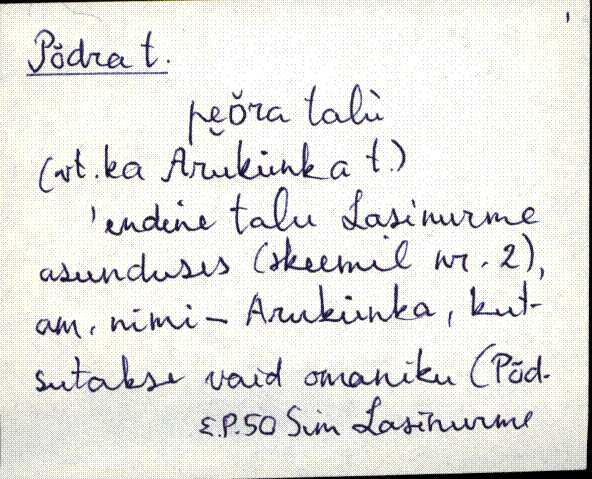 Põdra t.
pe̮ŏra talu̇̀
(vt. ka Arukünka t.)
'endine talu Lasinurme
asunduses (skeemil nr. 2),
am. nimi - Arukünka, kut-
sutakse vaid omaniku (Põd-
E.P.50 Sim Lasinurme